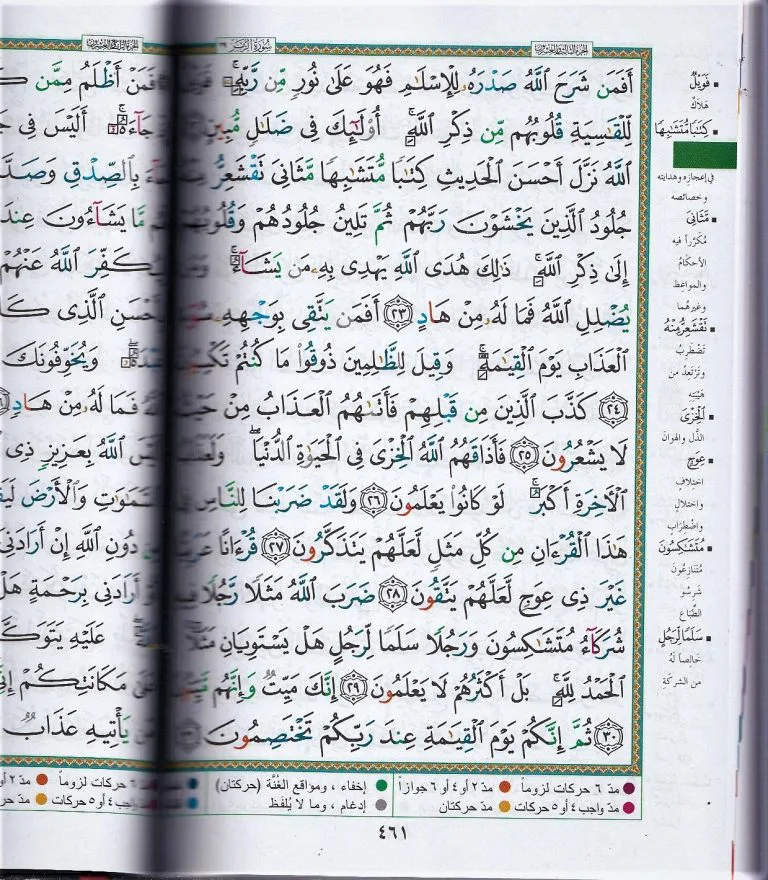 الجزء الثالث والعشرون
سُورَةُ الزُّمَر ٣٩
أَفَمَن شَرَحَ ٱللَّهُ صَدْرَهُۥ لِلْإِسْلَٰمِ فَهُوَ عَلَىٰ نُورٍ مِّن رَّبِّهِۦ
لِّلْقَٰسِيَةِ قُلُوبُهُم مِّن ذِكْرِ ٱللَّهِ أُو۟لَٰٓئِكَ فِى ضَلَٰلٍ مُّبِينٍ
ٱللَّهُ نَزَّلَ أَحْسَنَ ٱلْحَدِيثِ كِتَٰبًا مُّتَشَٰبِهًا مَّثَانِىَ تَقْشَعِرُّ
جُلُودُ ٱلَّذِينَ يَخْشَوْنَ رَبَّهُمْ ثُمَّ تَلِينُ جُلُودُهُمْ وَقُلُوبُهُمْ
إِلَىٰ ذِكْرِ ٱللَّهِ ذَٰلِكَ هُدَى ٱللَّهِ يَهْدِى بِهِۦ مَن يَشَآءُ
يُضْلِلِ ٱللَّهُ فَمَا لَهُۥ مِنْ هَادٍ ٢٣ أَفَمَن يَتَّقِى بِوَجْهِهِۦ
ٱلْعَذَابِ يَوْمَ ٱلْقِيَٰمَةِ وَقِيلَ لِلظَّٰلِمِينَ ذُوقُوا۟ مَا كُنتُمْ
٢٤ كَذَّبَ ٱلَّذِينَ مِن قَبْلِهِمْ فَأَتَىٰهُمُ ٱلْعَذَابُ مِنْ حَيْثُ
لَا يَشْعُرُونَ ٢٥ فَأَذَاقَهُمُ ٱللَّهُ ٱلْخِزْىَ فِى ٱلْحَيَوٰةِ ٱلدُّنْيَا
ٱلْءَاخِرَةِ أَكْبَرُ لَوْ كَانُوا۟ يَعْلَمُونَ ٢٦ وَلَقَدْ ضَرَبْنَا لِلنَّاسِ فِى
هَٰذَا ٱلْقُرْءَانِ مِن كُلِّ مَثَلٍ لَّعَلَّهُمْ يَتَذَكَّرُونَ ٢٧ قُرْءَانًا
غَيْرَ ذِى عِوَجٍ لَّعَلَّهُمْ يَتَّقُونَ ٢٨ ضَرَبَ ٱللَّهُ مَثَلًا رَّجُلًا
شُرَكَآءُ مُتَشَٰكِسُونَ وَرَجُلًا سَلَمًا لِّرَجُلٍ هَلْ يَسْتَوِيَانِ مَثَلًا
ٱلْحَمْدُ لِلَّهِ بَلْ أَكْثَرُهُمْ لَا يَعْلَمُونَ ٢٩ إِنَّكَ مَيِّتٌ وَإِنَّهُم
٣٠ ثُمَّ إِنَّكُمْ يَوْمَ ٱلْقِيَٰمَةِ عِندَ رَبِّكُمْ تَخْتَصِمُونَ
فَوَيْلٌ
هلاك
كِتَٰبًا مُّتَشَٰبِهًا
في إعجازه وهدايته
وخصائصه
مَّثَانِىَ
مكرّراً فيه
الأحكام
والمواعظ
وغيرهما
تَقْشَعِرُّ مِنْهُ
تضطرب
وترتعد من
هيبته
ٱلْخِزْىَ
الذّل والهوان
عِوَجٍ
اختلاف
واختلال
واضطراب
مُتَشَٰكِسُونَ
متنازعون
شرسو
الطّباع
سَلَمًا لِّرَجُلٍ
خالصاً له
من الشركة
مدّ ٦ حركات لزوماً
مدّ ٢ أو ٤ أو ٦ جوازاً
مدّ واجب ٤ أو ٥ حركات
مدّ حركتان
إخفاء ، ومواقع الغُنَّة (حركتان)
إدغام ، وما لا يُلفَظ
٤٦١
فَمَنْ أَظْلَمُ مِمَّن
جَآءَهُۥٓ أَلَيْسَ فِى
بِٱلصِّدْقِ وَصَدَّ
مَّا يَشَآءُونَ عِندَ
ٱللَّهُ عَنْهُمْ
ٱلَّذِى
وَيُخَوِّفُونَكَ
فَمَا لَهُۥ مِنْ هَادٍ
ٱللَّهُ بِعَزِيزٍ ذِى
وَٱلْأَرْضَ
دُونِ ٱللَّهِ إِنْ أَرَادَنِىَ
أَرَادَنِى بِرَحْمَةٍ هَلْ
عَلَيْهِ يَتَوَكَّ
مَكَانَتِكُمْ
يَأْتِيهِ عَذَابٌ